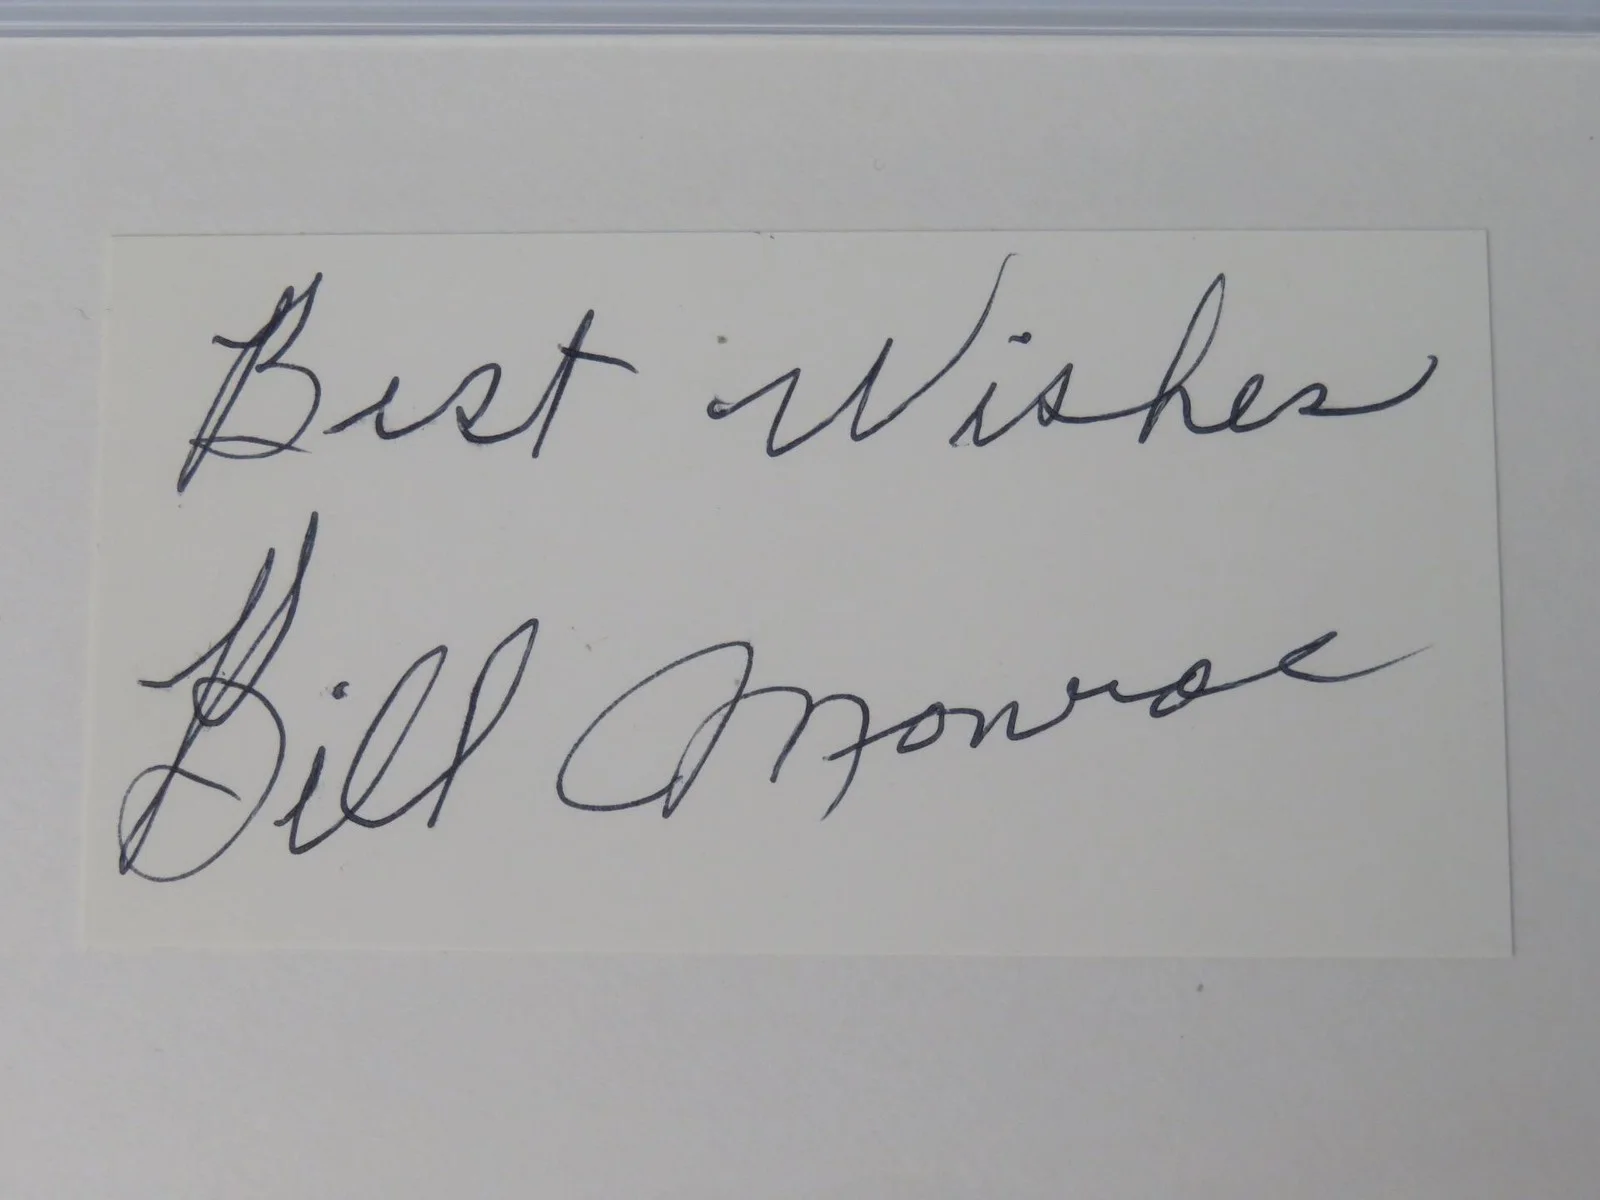 Best Wishes
Bill Monroe